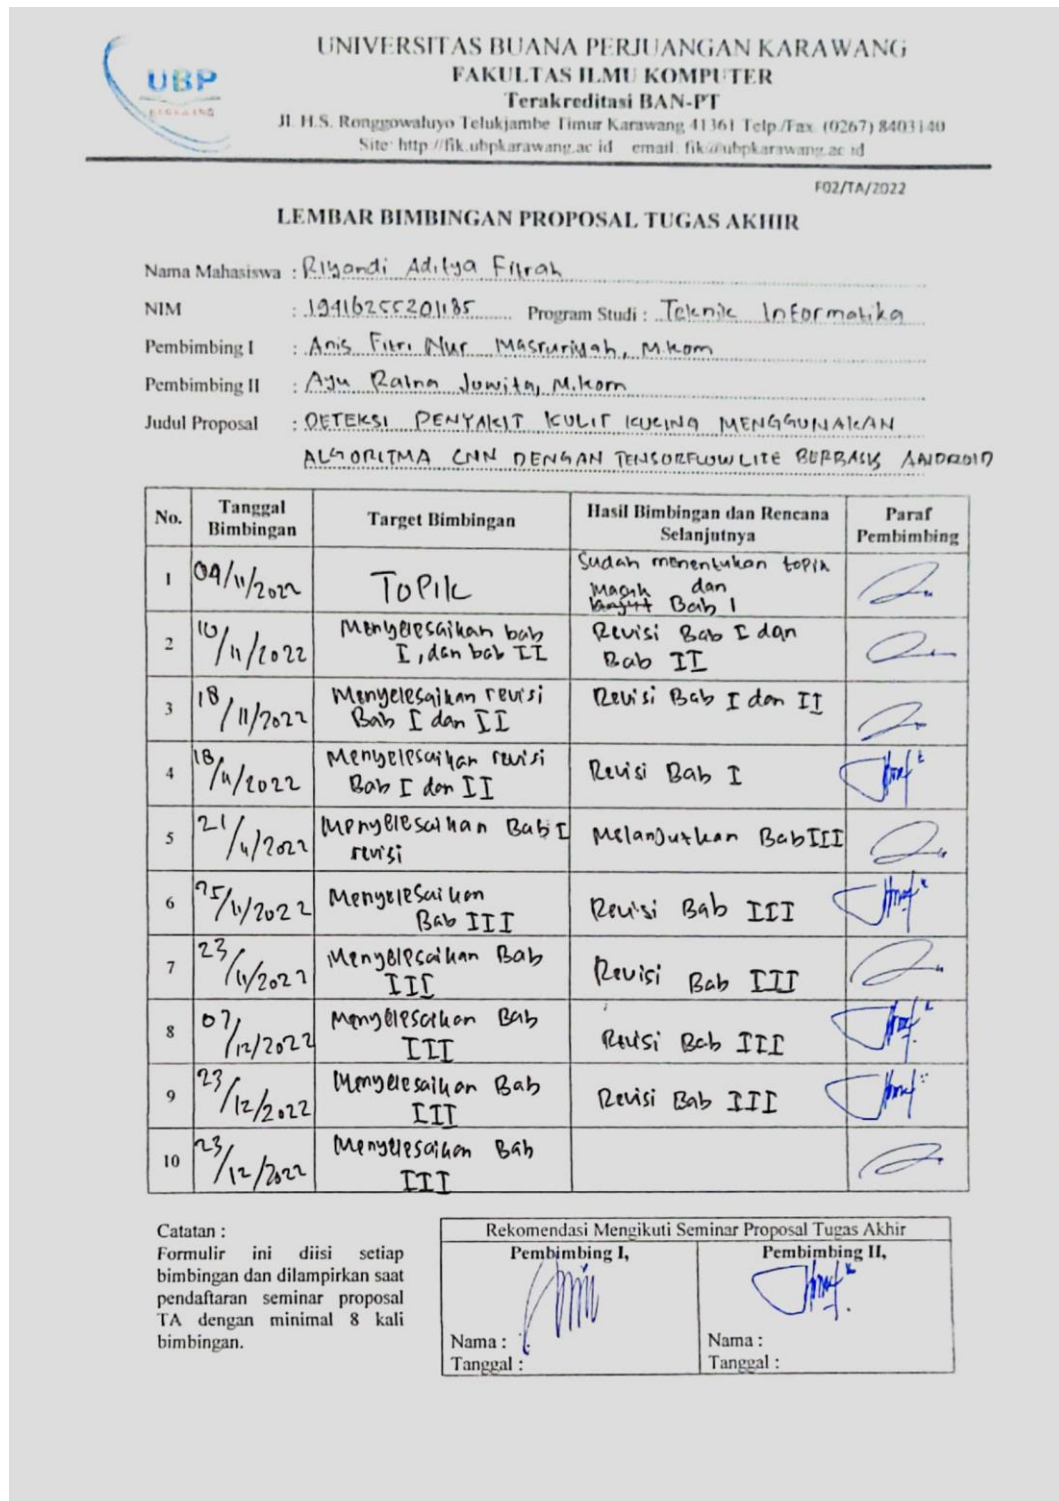 UBP
KARAWANG
UNIVERSITAS BUANA PERJUANGAN KARAWANG
FAKULTAS ILMU KOMPUTER
Terakreditasi BAN-PT
Jl. H.S. Ronggowaluyo Telukjambe Timur Karawang 41361 Telp./Fax. (0267) 8403140
Site: http://fik.ubpkarawang.ac.id email: fik@ubpkarawang.ac.id
F02/TA/2022
LEMBAR BIMBINGAN PROPOSAL TUGAS AKHIR
Nama Mahasiswa : Riyandi Aditya Fitrah
NIM : 19416255201185 Program Studi : Teknik Informatika
Pembimbing I : Anis Fitri Nur Masruriyah, M.Kom
Pembimbing II : Ayu Ratna Juwita, M.Kom
Judul Proposal : DETEKSI PENYAKIT KULIT KUCING MENGGUNAKAN
ALGORITMA CNN DENGAN TENSORFLOWLITE BERBASIS ANDROID
No. Tanggal Bimbingan Target Bimbingan Hasil Bimbingan dan Rencana Selanjutnya Paraf Pembimbing
1 04/11/2022 TOPIK Sudah menentukan topik dan Bab I
2 10/11/2022 Menyelesaikan bab I, dan bab II Revisi Bab I dan Bab II
3 18/11/2022 Menyelesaikan revisi Bab I dan II Revisi Bab I dan II
4 18/11/2022 Menyelesaikan revisi Bab I dan II Revisi Bab I
5 21/11/2022 Menyelesaikan Bab I revisi Melanjutkan Bab III
6 25/11/2022 Menyelesaikan Bab III Revisi Bab III
7 23/11/2022 Menyelesaikan Bab III Revisi Bab III
8 07/12/2022 Menyelesaikan Bab III Revisi Bab III
9 23/12/2022 Menyelesaikan Bab III Revisi Bab III
10 23/12/2022 Menyelesaikan Bab III
Catatan :
Formulir ini diisi setiap
bimbingan dan dilampirkan saat
pendaftaran seminar proposal
TA dengan minimal 8 kali
bimbingan.
Rekomendasi Mengikuti Seminar Proposal Tugas Akhir
Pembimbing I, Pembimbing II,
Nama : Nama :
Tanggal : Tanggal :